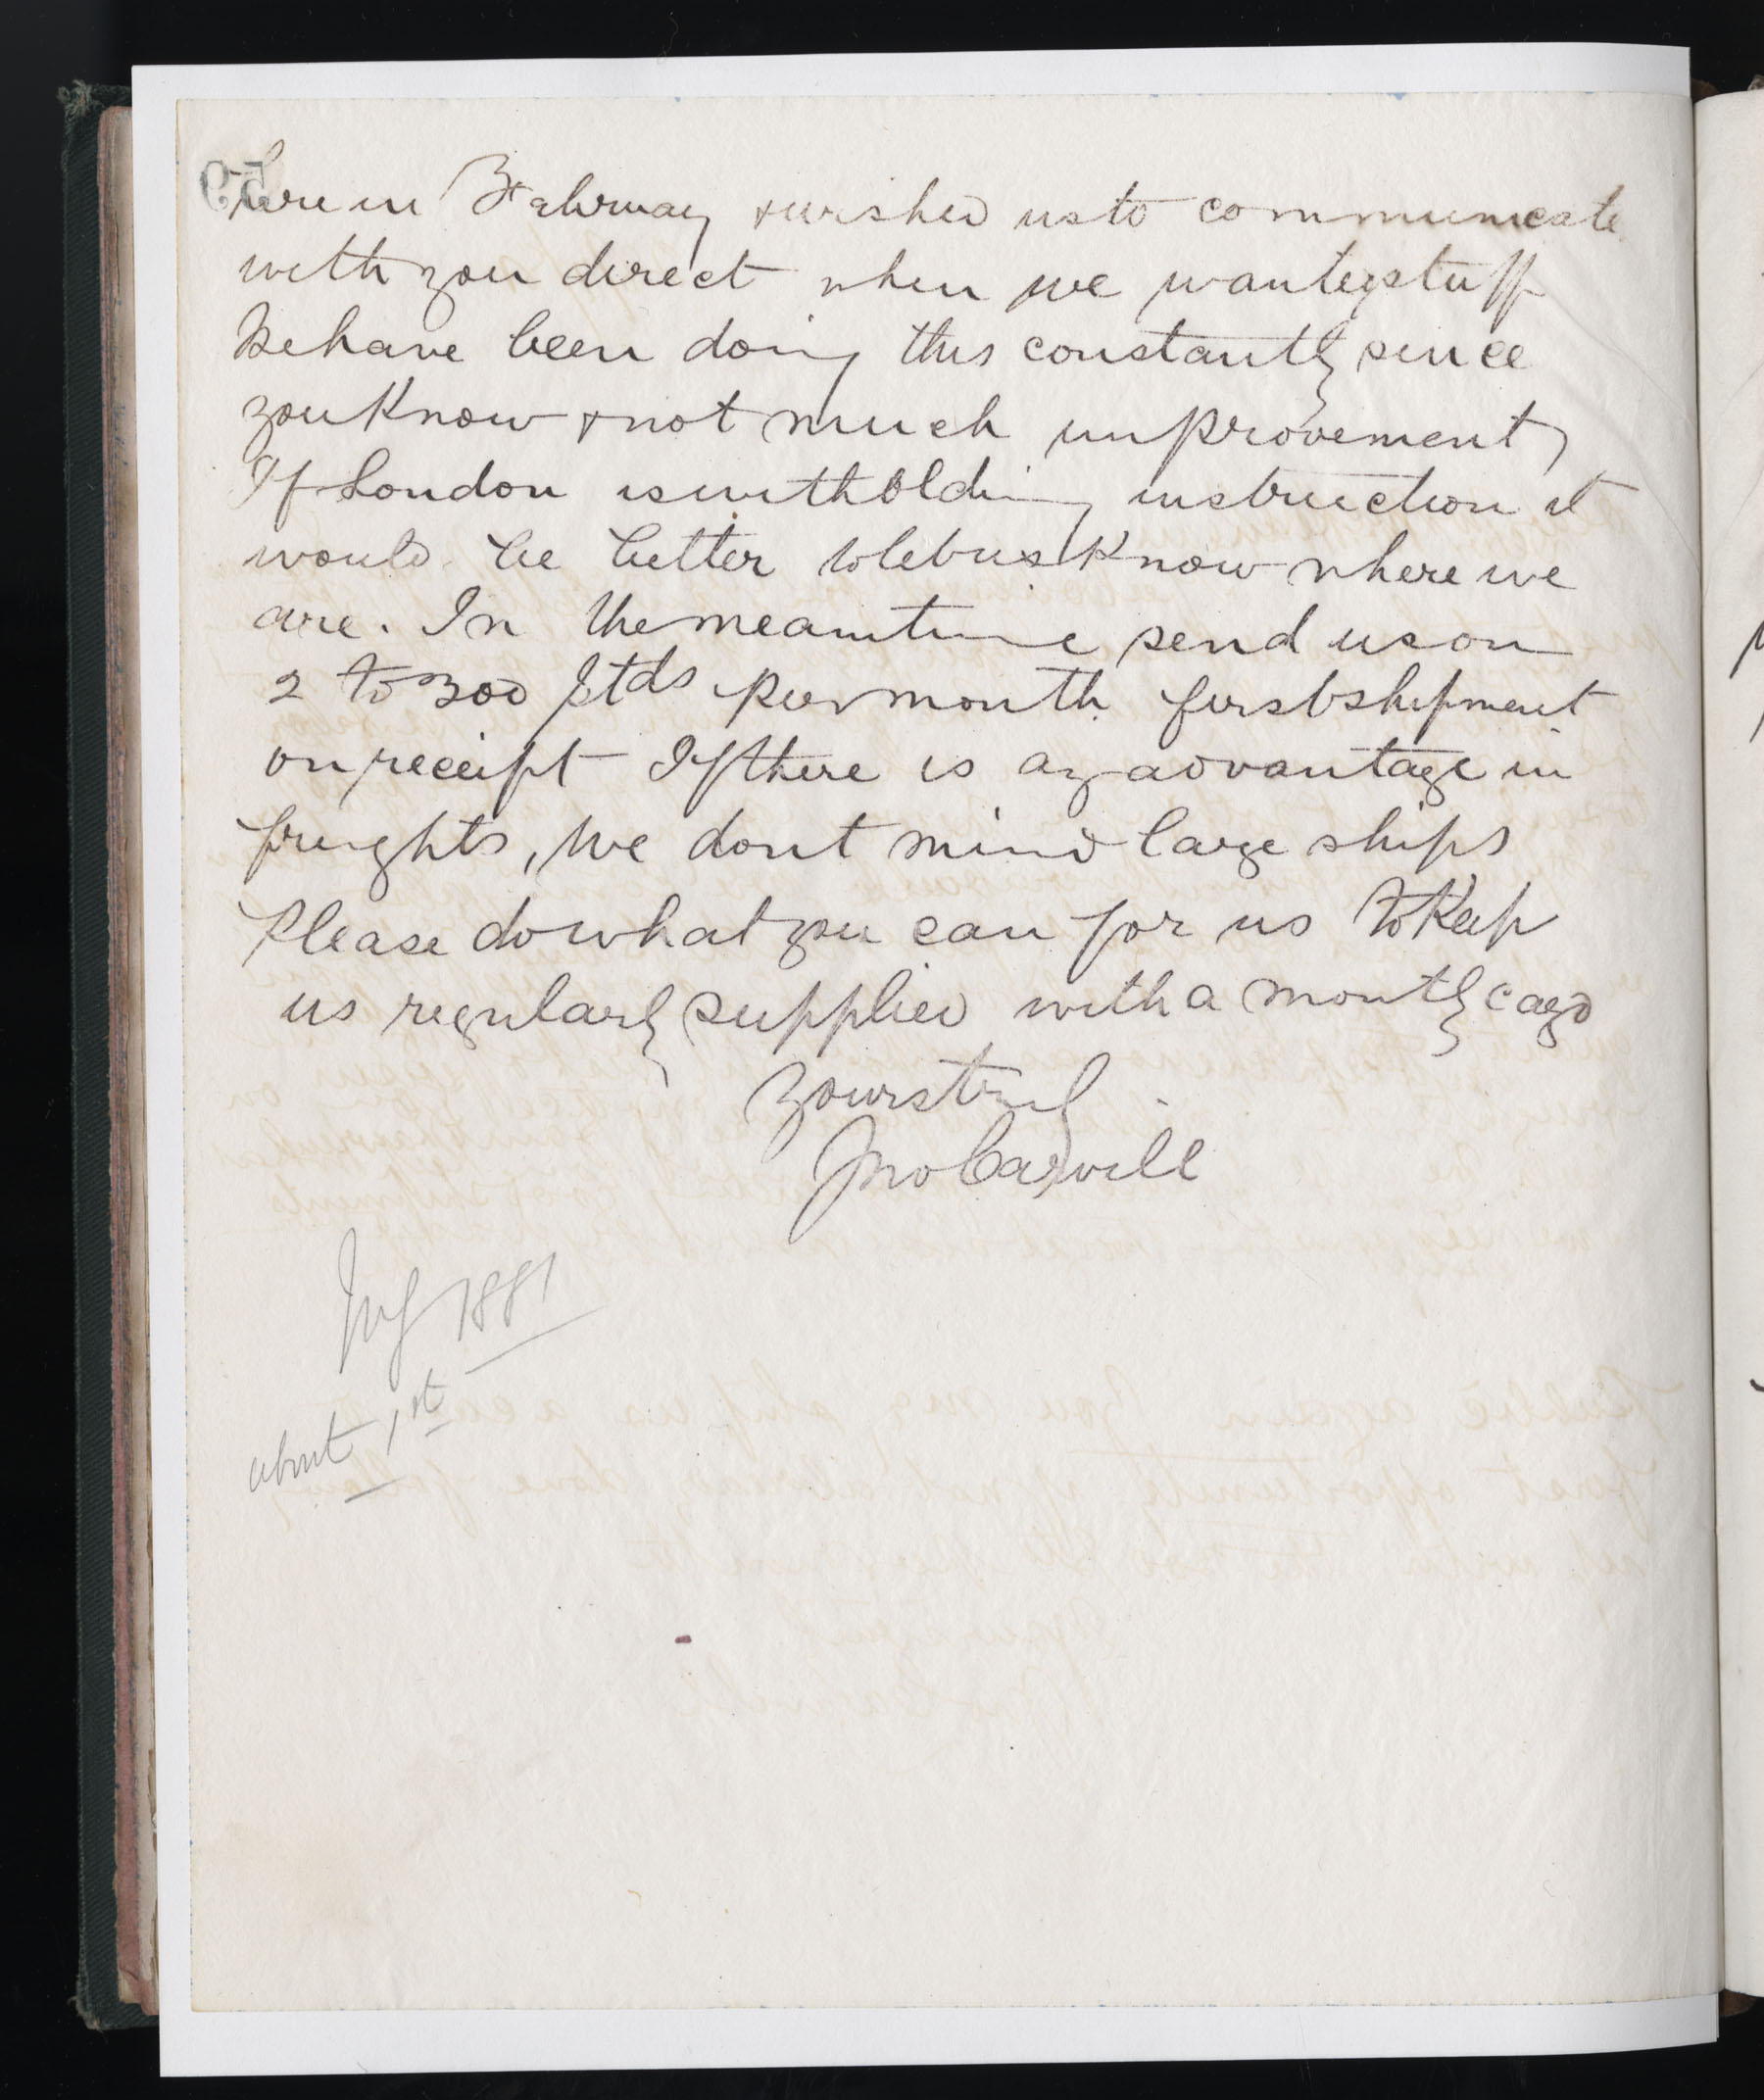 here in Februway & wished us to communicate
with you direct when we wanted stuff
We have been doing this constantly since
you know & not much improvement,
If London is witholding instruction it
would be better to let us know where we
are. In the meantime send us on
2 to 300 Stds per month first shipment
on receipt If there is any advantage in
freights, we dont mind large ships
Please do what you can for us to keep
us regularly supplied with a monthly cargo
Yours truly
Jno Carvill
July 1881
about 1st